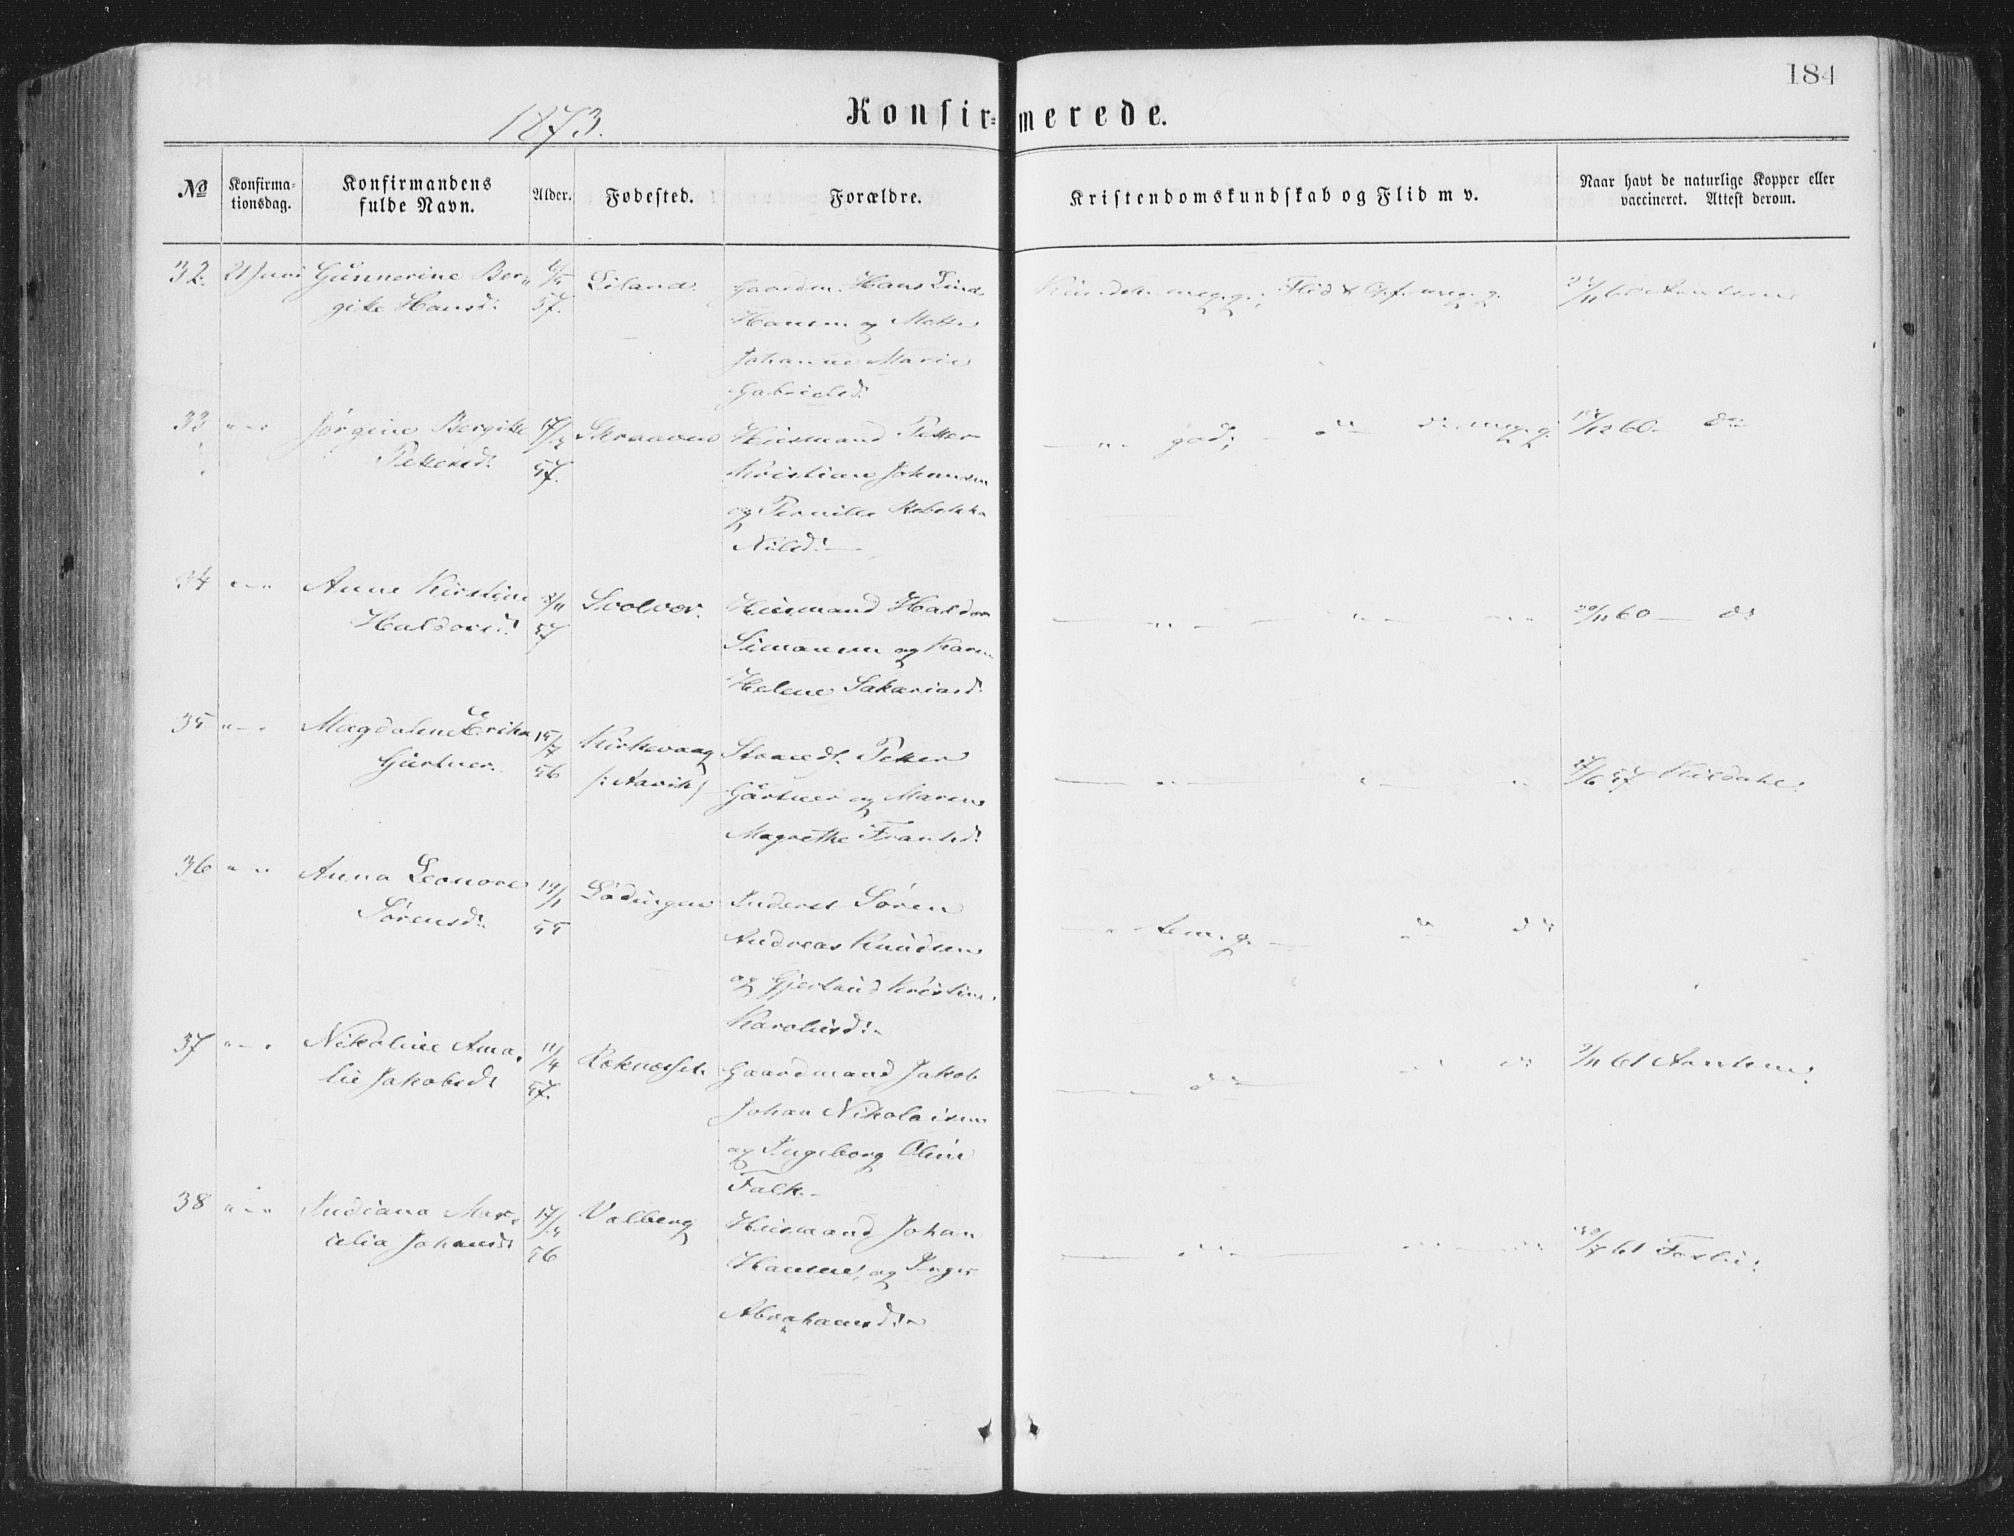 184
1873.
Konfir=merede.
No
Konfirma-
tionsdag.
Konfirmandens
fulde Navn.
Alder.
Fødested.
Forældre.
Kristendomskundskab og Flid m v.
Naar havt de naturlige Kopper eller
vaccineret. Attest derom.
32. Gunnerine Ber-
gite Hansd.
57.
Liland
Gaardm. Hans Lind
Hansen og Mette
Johanne Marie
Gabrielsd.
33 Jørgine Bergitte
Petersd.
57.
Skraaven
Huusmand Petter
Kristian Johansen
og Pernille Rebekka
Nilsd.
god;
60
34 Anne Kirstine
Haldorsd.
57
Svolvær.
Huusmand Haldor
Simonsen og Karen
Helene Sakariasd.
20/11 60 do
35 Magdalena Erika
Gärtner.
15/7
56
Kirkevaag
Strands. Petter
Gärtner og Maren
Magrethe Frantsd.
57 Kildahl.
36 Anna Leonore
Sørensd.
19/1
55
Lødingen
Inderst Søren
Andreas Knudsen
og Gjertrud Kristine
Karolusd.
37 Nikoline Ama-
lie Jakobsd.
11/4
57.
Gaardmand Jakob
Johan Nikolaisen
og Ingeborg Oline
Falk.
61
38 Indiana Mar-
selia Johansd.
56
Valberg
Huusmand Johan
Hansen og Inger
Abrahamsd.
61 Foslie.